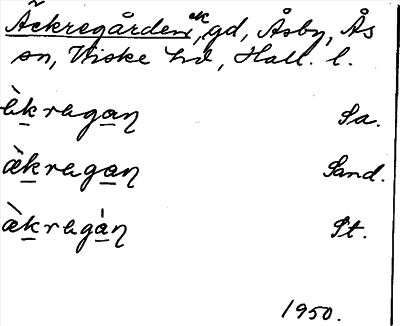 Äckregården ek, gd, Åsby, Ås
sn, Viske hd, Hall. l.
ɛ̀kragaɳ Sa.
æ̀kragaɳ Sand.
æ̀kragáɳ St.
1950.